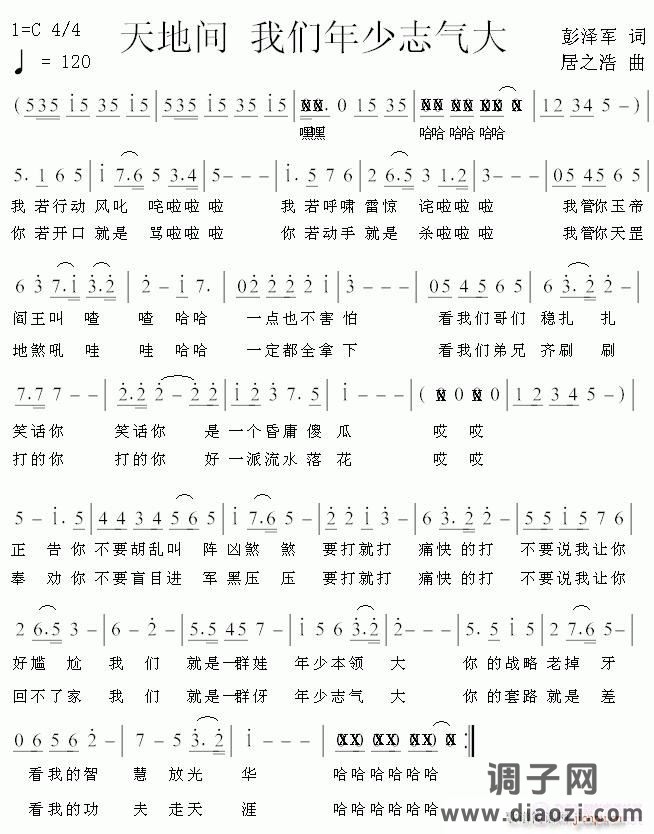 1=C 4/4 天地间 我们年少志气大 彭泽军 词
♩ = 120 居之浩 曲
(535 i535 i5 | 535 i535 i5 | XX. 0 i5 35 | XX XX XX X X) | 1234 5 -) |
嘿嘿 哈哈 哈哈 哈哈
5. 1 6 5 | i 7.6 5 3.4 | 5 - - - | i. 5 7 6 | 2 6.5 3 1.2 | 3 - - - | 05 45 6 5 |
我 若行动 风叱 咤啦啦 啦 我 若呼啸 雷惊 诧啦啦 啦 我管你玉帝
你 若开口 就是 骂啦啦 啦 你 若动手 就是 杀啦啦 啦 我管你天罡
6 3 7.i 3.2 | 2 - i 7. | 02 2 2 2 i | 3 - - - | 05 45 6 5 | 6 3. 2 2 |
阎王叫 喳 喳 哈哈 一点也不害 怕 看我们哥们 稳扎 扎
地煞吼 哇 哇 哈哈 一定都全拿 下 看我们弟兄 齐刷 刷
7.7 7 - - | 2.2 2 - 2 2 | i 2 3 7. 5 | i - - - | (X 0 X 0 | 1 2 3 4 5 -) |
笑话你 笑话你 是 一个昏庸 傻 瓜 哎 哎
打的你 打的你 好 一派流水 落 花 哎 哎
5 - i. 5 | 4 4 3 4 5 6 5 | i 7.6 5 - | 2 2 i 3 - | 6 3. 2 2 - | 5 5 i 5 7 6 |
正 告 你 不要胡乱叫 阵 凶煞 煞 要打就打 痛快 的打 不要说我让你
奉 劝 你 不要盲目进 军 黑压 压 要打就打 痛快 的打 不要说我让你
2 6.5 3 - | 6 - 2 - | 5.5 45 7 - | i 5 6 3.2 | 2 - - - | 5. 5 i 5 | 2 7.6 5 - |
好尴 尬 我 们 就是一群娃 年少本领 大 你 的战略 老掉 牙
回不了家 我 们 就是一群伢 年少志气 大 你 的套路 就是 差
0 6 5 6 2 - | 7 - 5 3. 2 | i - - - | (XX) (XX) (XX) X :||
看我的智 慧 放光 华 哈哈哈哈哈哈
看我的功 夫 走天 涯 哈哈哈哈哈哈
调子网
www.diaozi.com